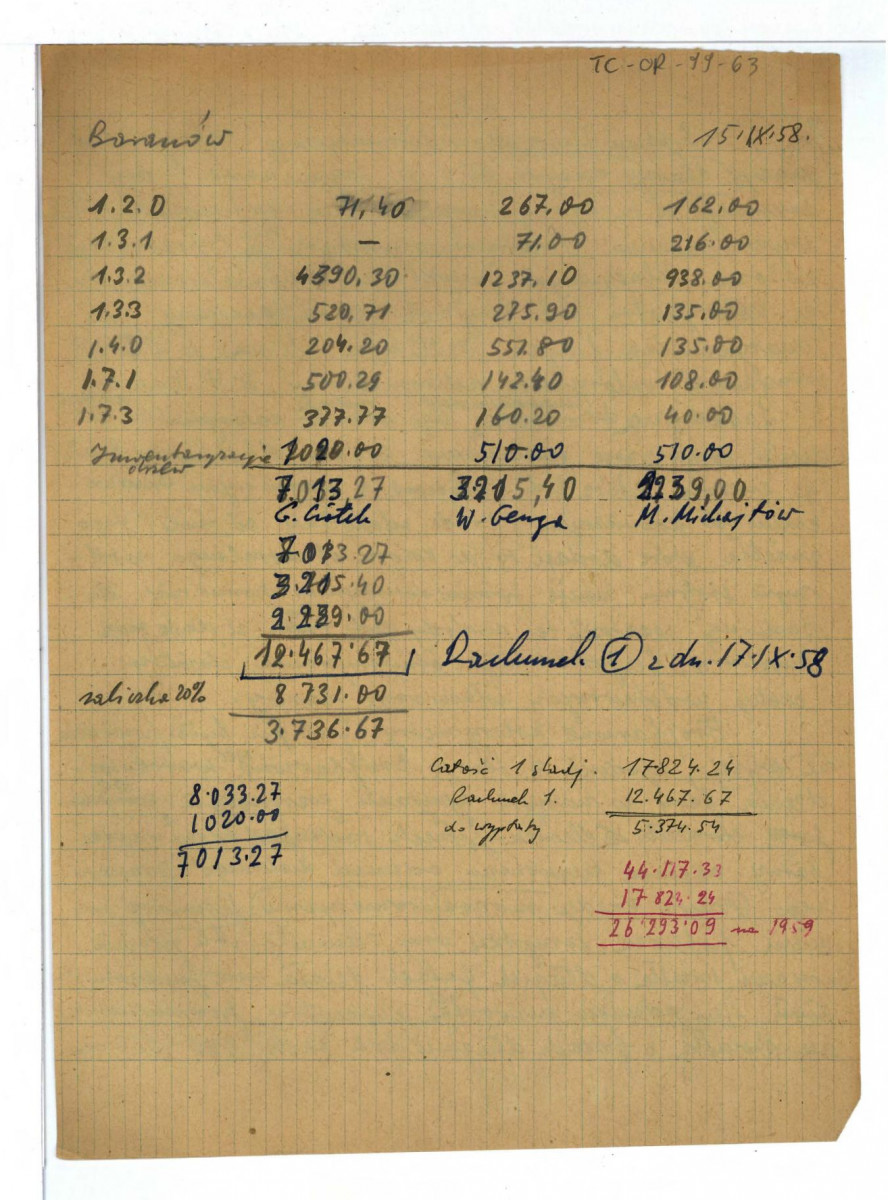 TC-OR-19-63
Baranów 15.IX.58.
1.2.0 71,40 267,00 162,00
1.3.1 — 71.00 216.00
1.3.2 4390,30 1237,10 938.00
1.3.3 520,71 275.90 135.00
1.4.0 204.20 551.80 135.00
1.7.1 500.29 142.40 108.00
1.7.3 377.77 160.20 40.00
Inwentaryzacja 1020.00 510.00 510.00
drzew
7.013,27 3215,40 2239,00
G. Ciołek W. Genga M. Michajłów
7.013.27
3.215.40
2.239.00
12.467.67 Rachunek 1 z dn. 17.IX.58
zaliczka 20% 8 731.00
3.736.67
Całość 1 stadj. 17824.24
8.033.27 Rachunek 1. 12.467.67
1020.00 do wypłaty 5.374.54
7013.27
44.117.33
17 824.24
26.293.09 na 1959